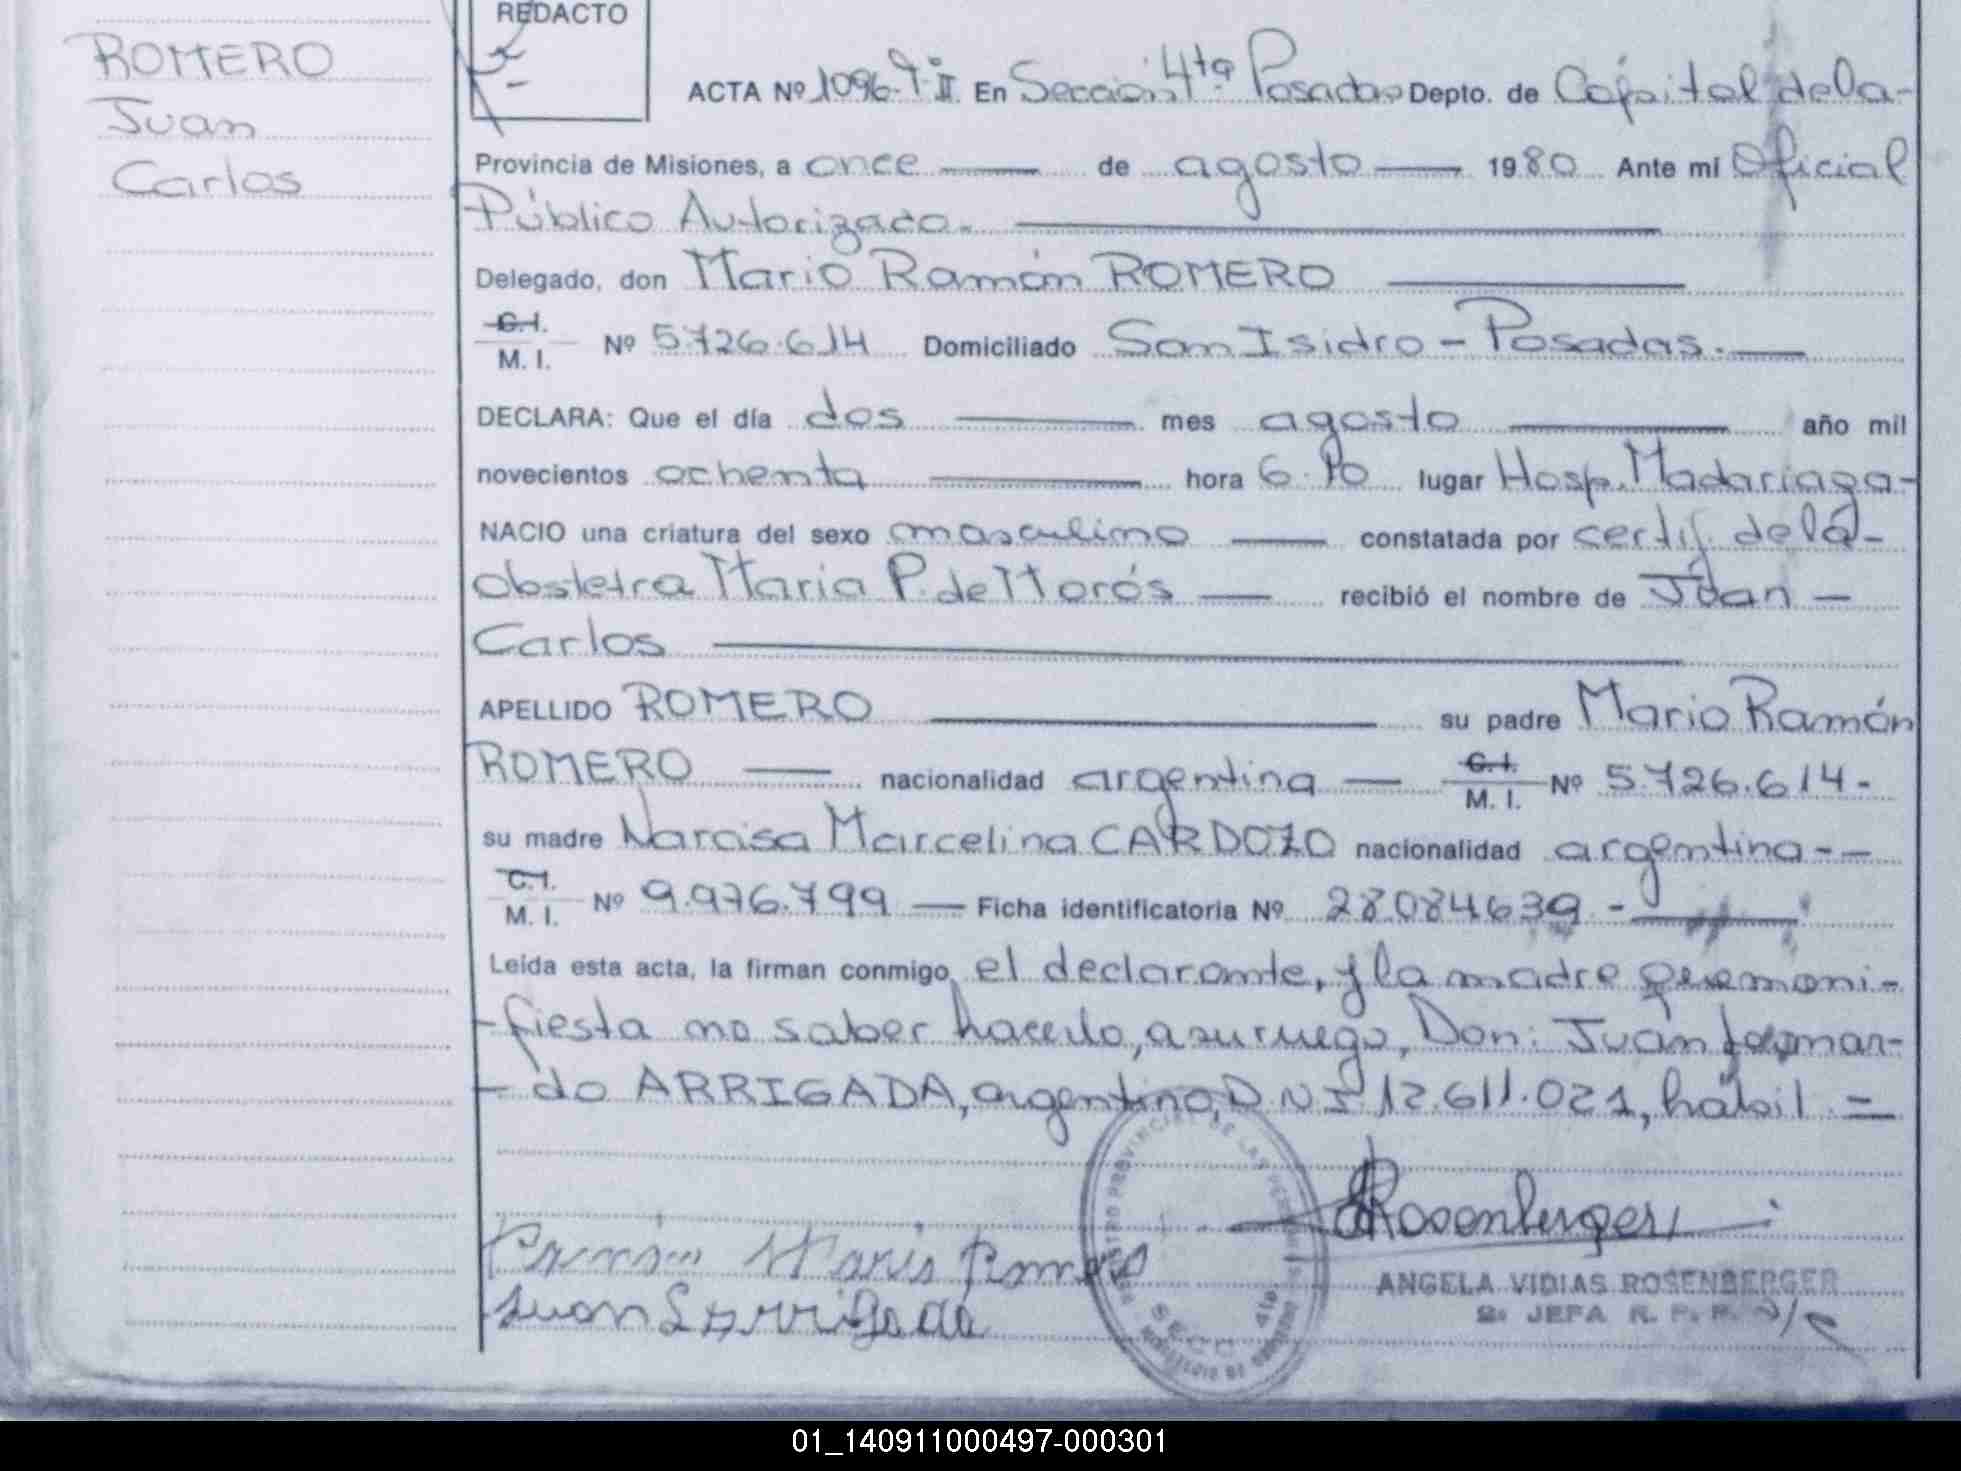 ROMERO
Juan
Carlos
REDACTO
ACTA Nº 1096-Tº II En Sección 4ta. Posadas Depto. de Capital de la-
Provincia de Misiones, a once de agosto 1980 Ante mi Oficial
Público Autorizado.
Delegado, don Mario Ramón ROMERO
C.I. M. I. Nº 5.726.614 Domiciliado San Isidro - Posadas.
DECLARA: Que el día dos mes agosto año mil
novecientos ochenta hora 6.10 lugar Hosp. Madariaga-
NACIO una criatura del sexo masculino constatada por certif. de la-
obstetra Maria P. de Morós recibió el nombre de Juan -
Carlos
APELLIDO ROMERO su padre Mario Ramón
ROMERO nacionalidad argentina C.I. M. I. Nº 5.726.614-
su madre Narcisa Marcelina CARDOZO nacionalidad argentina--
C.I. M. I. Nº 9.976.799 Ficha identificatoria Nº 28084639 -
Leída esta acta, la firman conmigo, el declarante, y la madre que mani-
-fiesta no saber hacerlo, a su ruego, Don: Juan
-do ARRIGADA, argentino, D.N.I. 12.611.021, hábil =
Rosenberger
Juan Arrigada
ANGELA VIDIAS ROSENBERGER
JEFA R. P. P.
SECC. 4ta
01_140911000497-000301